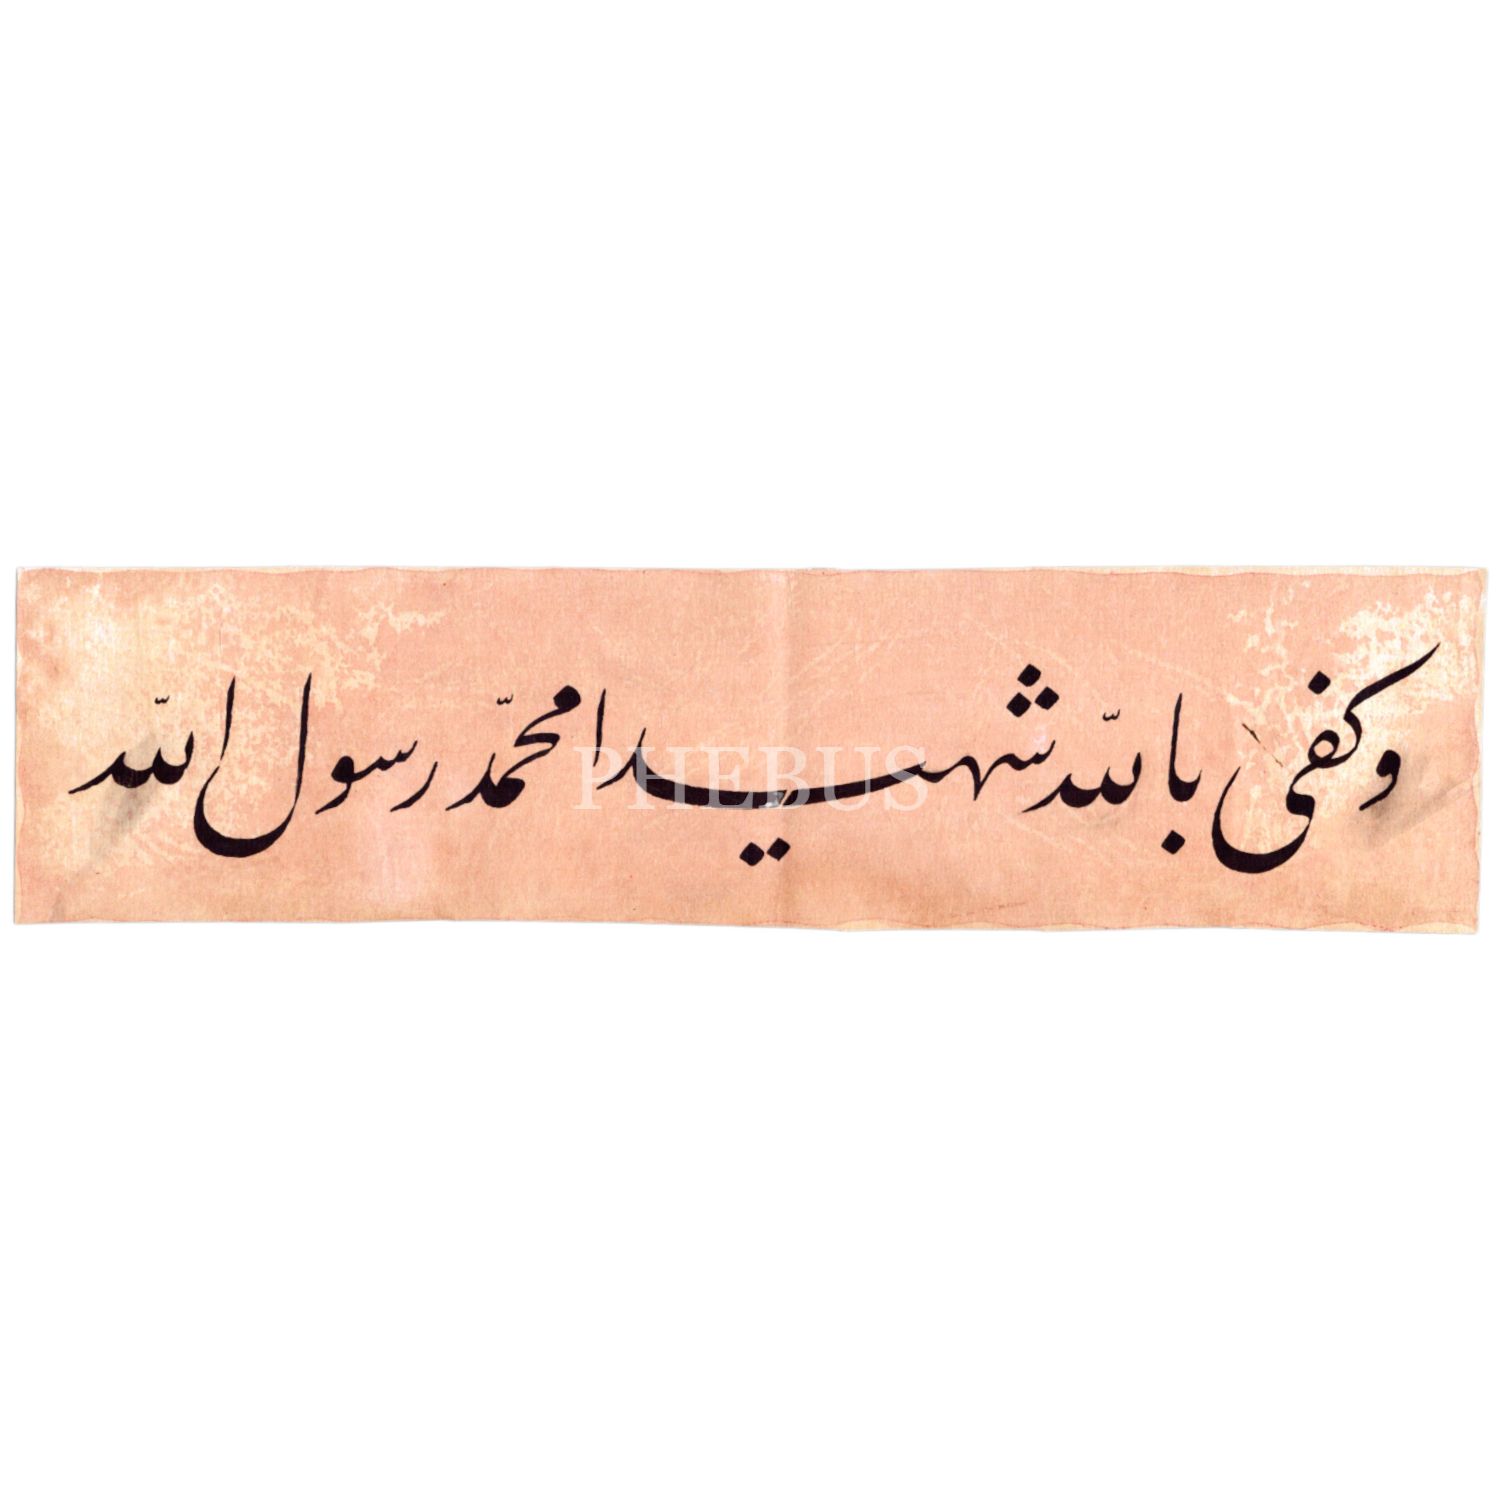 وكفى بالله شهيدا محمّد رسول الله
PHEBUS